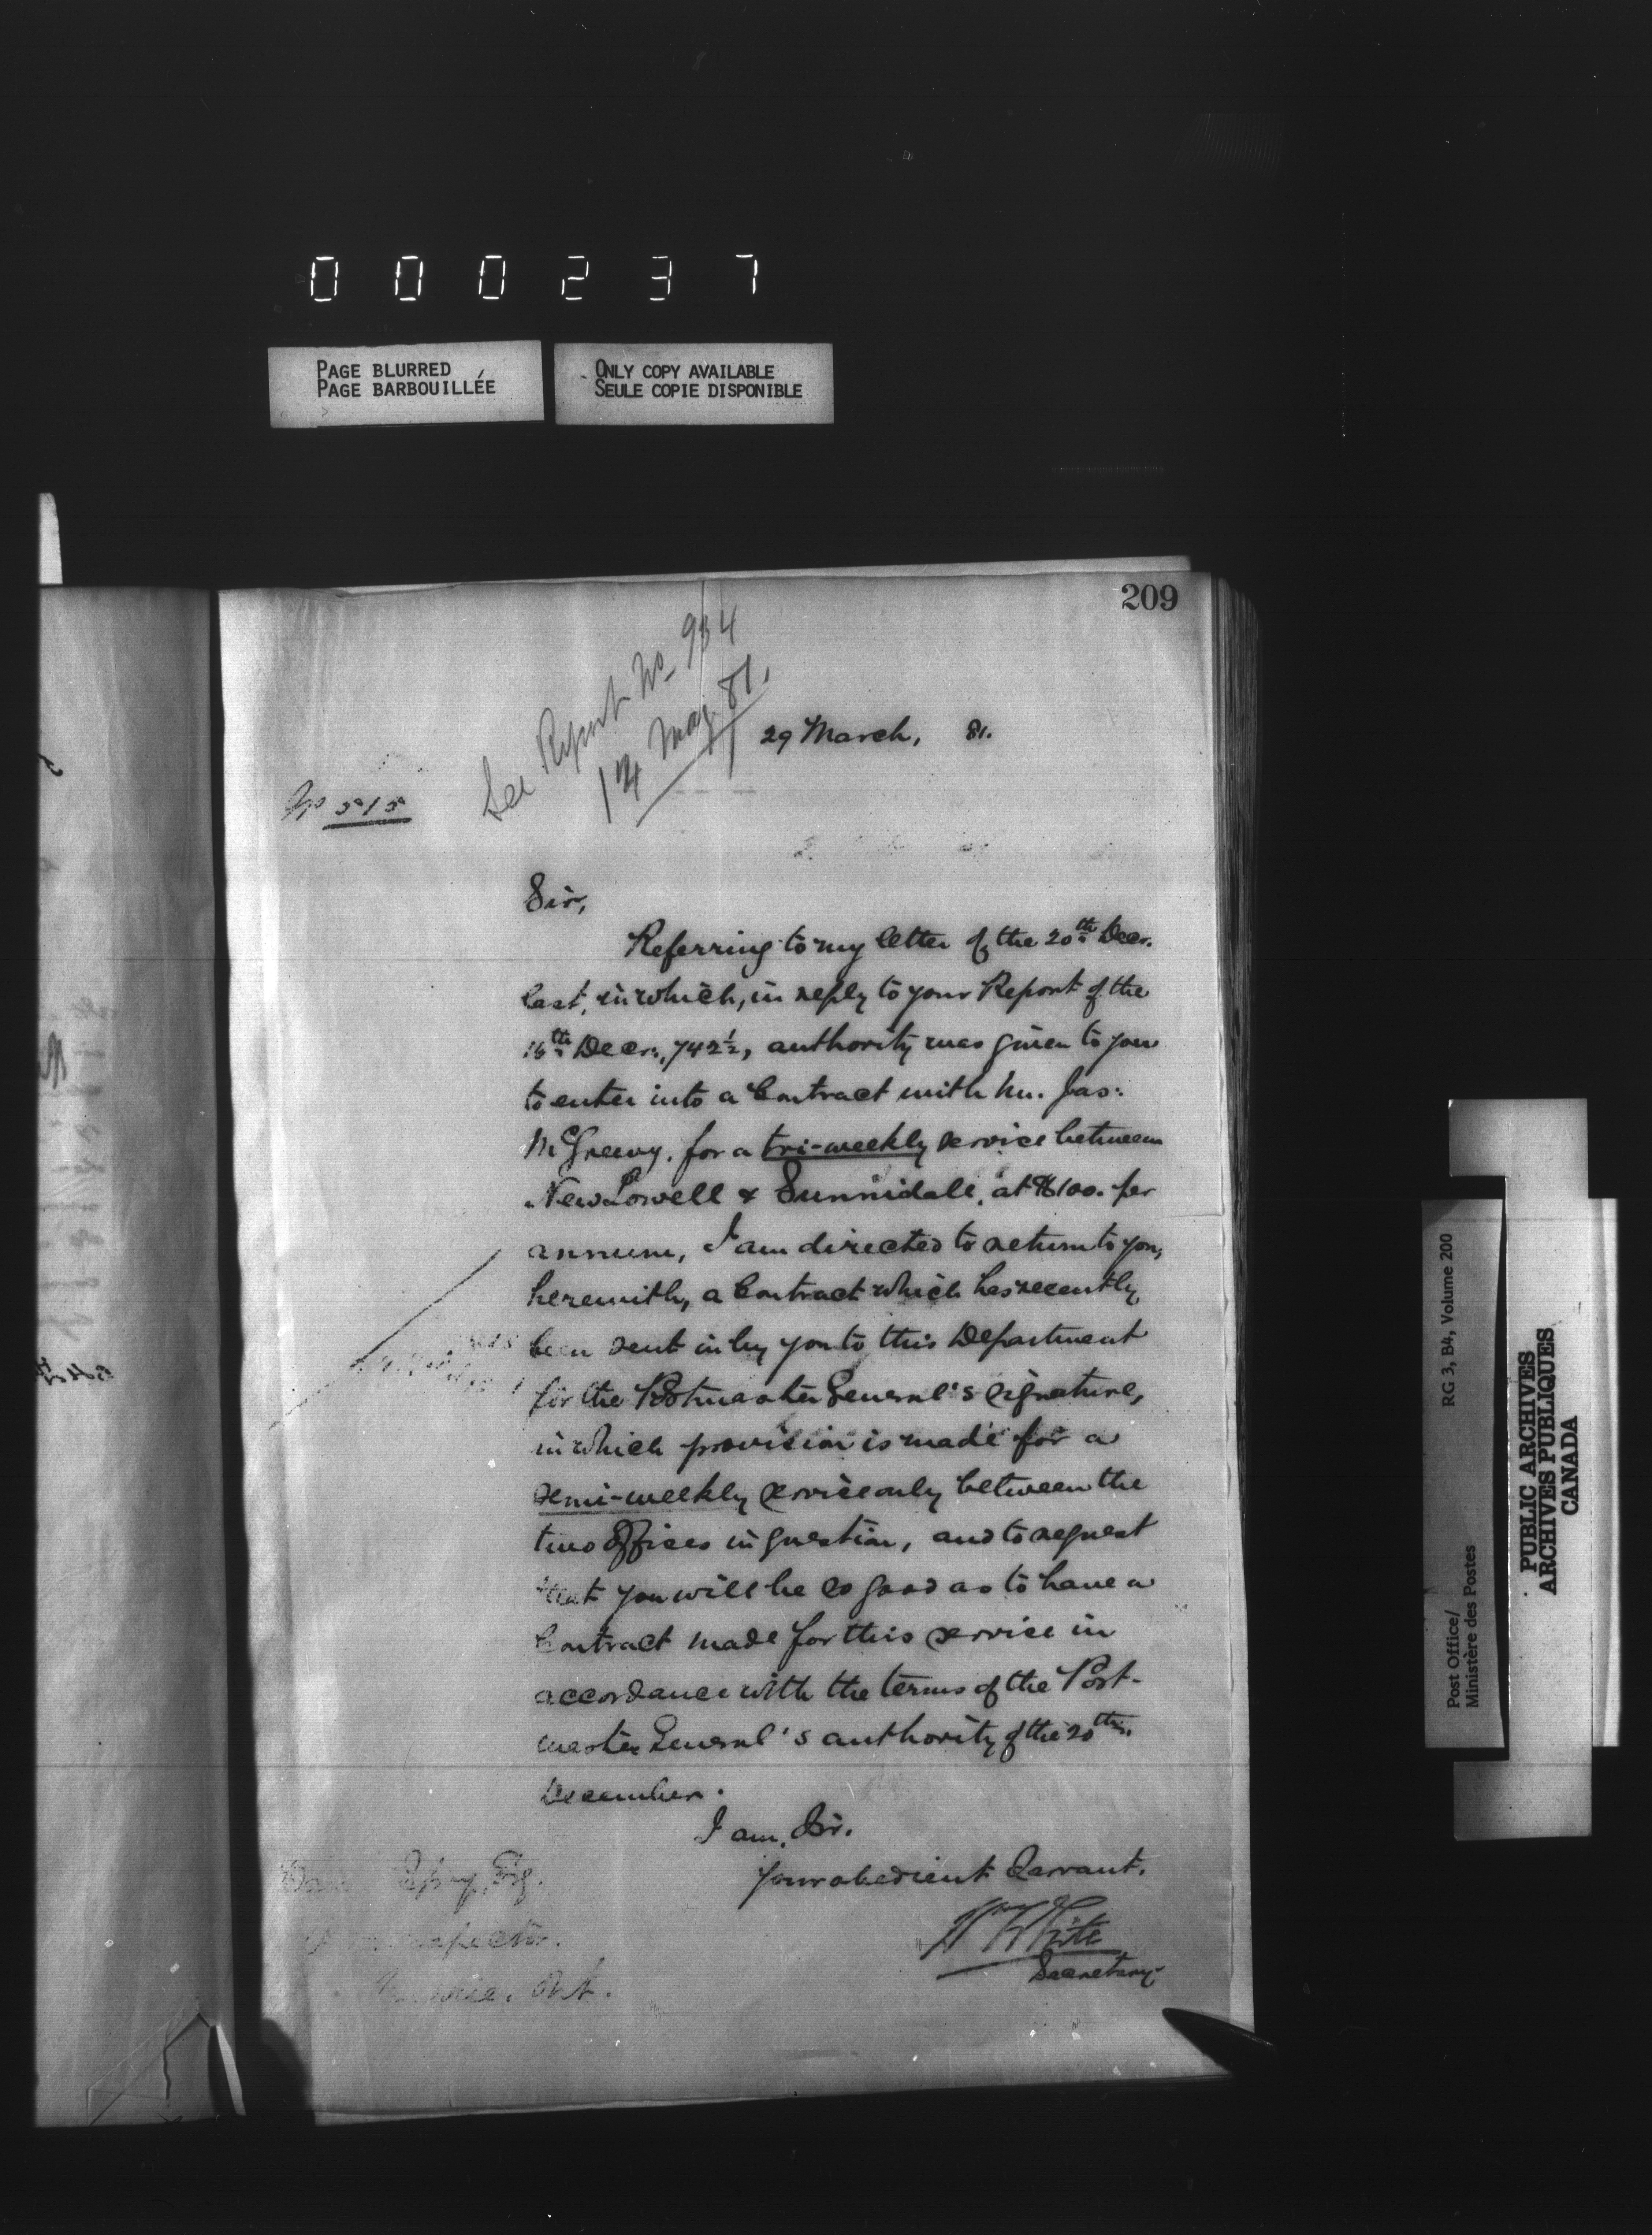 000237
PAGE BLURRED
PAGE BARBOUILLÉE
ONLY COPY AVAILABLE
SEULE COPIE DISPONIBLE
209
See Report No 934
14 May 81.
29 March, 81.
No 515
Sir,
Referring to my letter of the 20th Decr.
last, in which, in reply to your Report of the
16th Decr., 742½, authority was given to you
to enter into a Contract with Mr. Jas:
McGreevy, for a tri-weekly service between
New Lowell & Sunnidale, at $100. per
annum, I am directed to return to you,
herewith, a Contract which has recently
been sent in by you to this Department
for the Postmaster General's signature,
in which provision is made for a
semi-weekly service only between the
two Offices in question, and to request
that you will be so good as to have a
Contract made for this service in
accordance with the terms of the Post-
master General's authority of the 20th
December.
I am, Sir,
Your obedient Servant,
White
Secretary
Esq.
Inspector.
Ont.
RG 3, B4, Volume 200
Post Office/
Ministère des Postes
PUBLIC ARCHIVES
ARCHIVES PUBLIQUES
CANADA